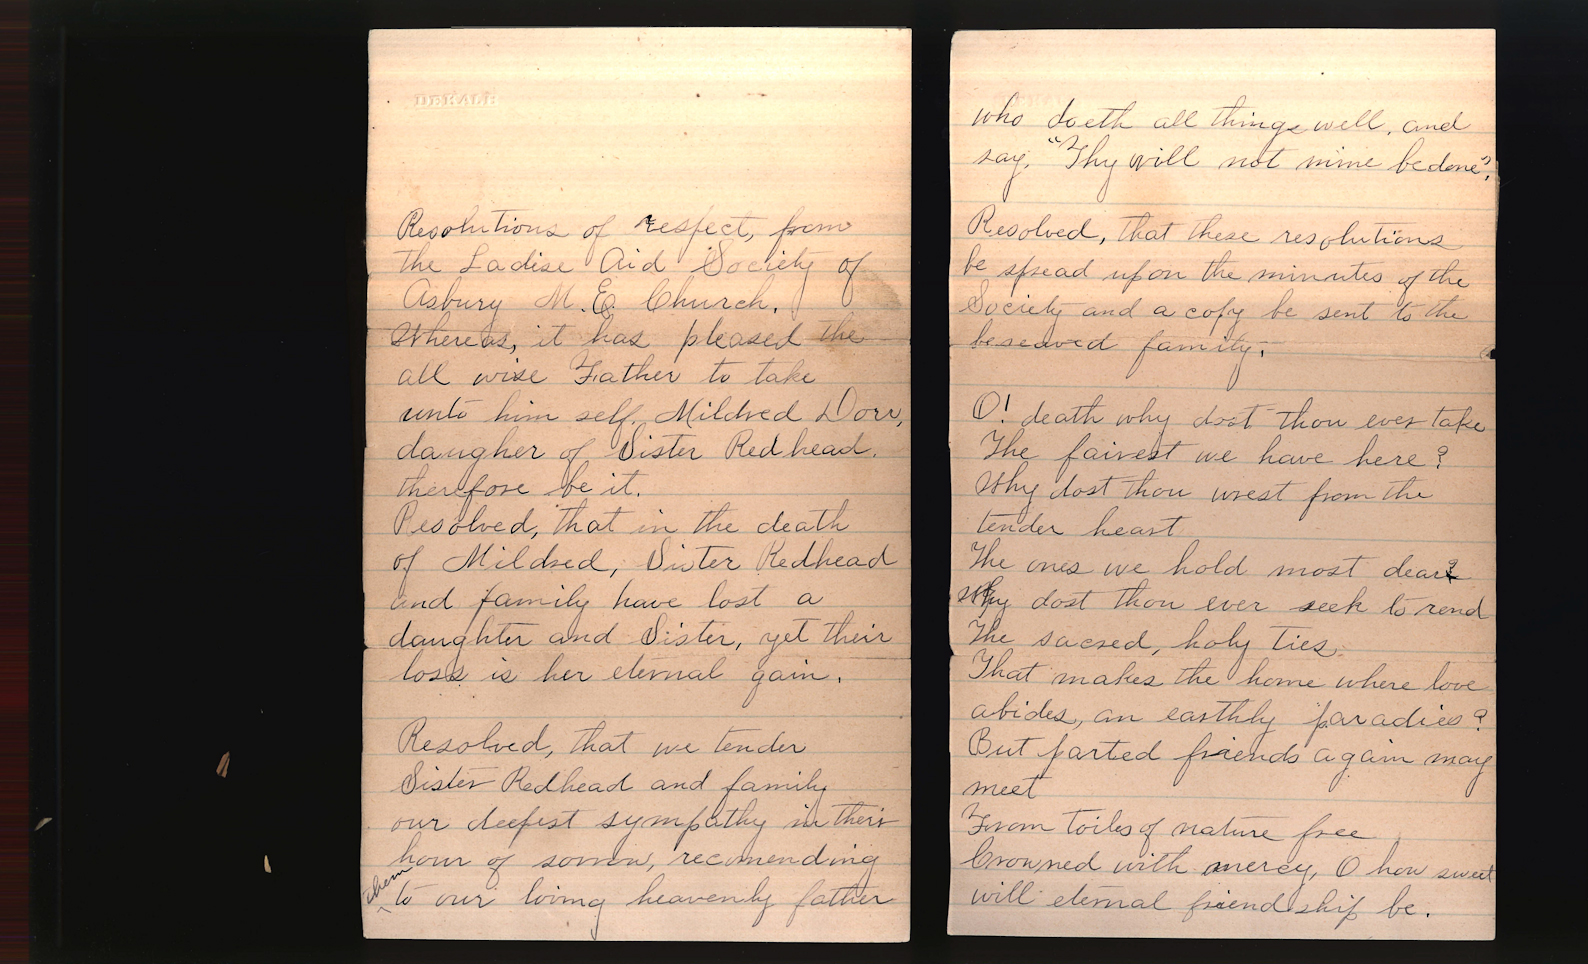 Resolutions of respect, from
the Ladise Aid Society of
Asbury M.E. Church.
Whereas, it has pleased the
all wise Father to take
unto him self, Mildred Dorr,
daugher of Sister Redhead.
therefore be it.
Resolved, that in the death
of Mildred, Sister Redhead
and family have lost a
daughter and Sister, yet their
loss is her eternal gain.
Resolved, that we tender
Sister Redhead and family
our deepest sympathy in their
hour of sorrow, recomending
them
to our loving heavenly father
who doeth all things well, and
say, "Thy will not mine be done".
Resolved, that these resolutions
be spread upon the minutes of the
Society and a copy be sent to the
bereaved family.
O! death why dost thou ever take
The fairest we have here?
Why dost thou wrest from the
tender heart
The ones we hold most dear?
Why dost thou ever seek to rend
The sacred, holy ties.
That makes the home where love
abides, an earthly paradies?
But parted friends again may
meet
From toiles of nature free
Crowned with mercy, O how sweet
will eternal friendship be.